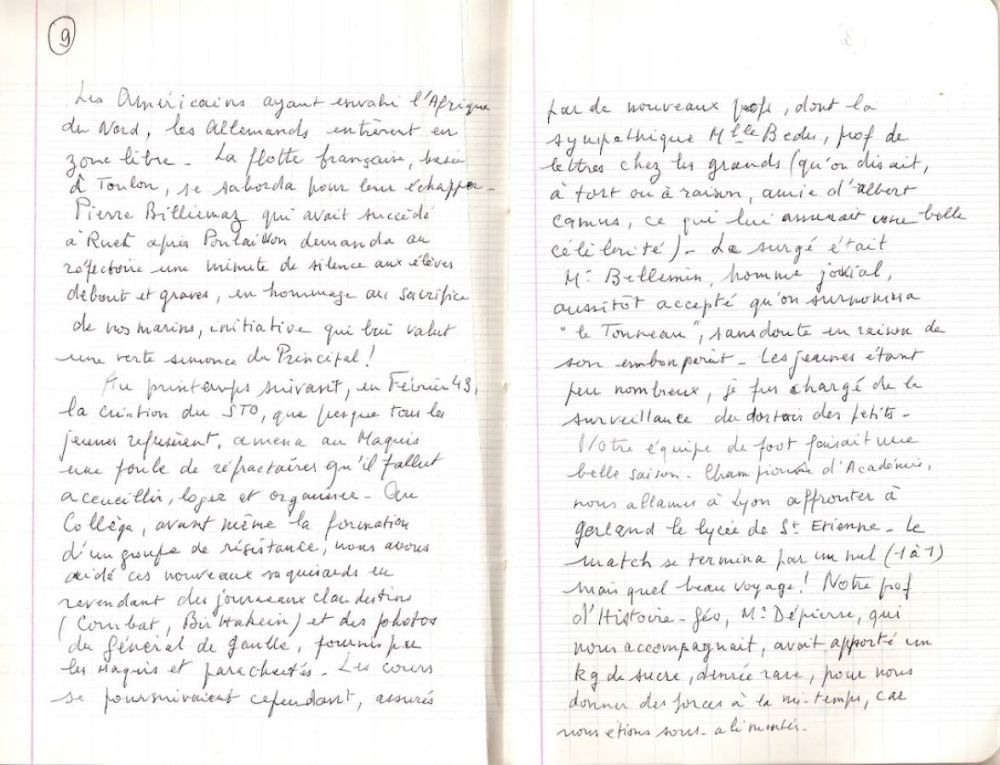 9
Les Américains ayant envahi l'Afrique
du Nord, les Allemands entrèrent en
zone libre - La flotte française, basée
à Toulon, se saborda pour leur échapper -
Pierre Billiemaz qui avait succédé
à Ruet après Pontaillon demanda au
réfectoire une minute de silence aux élèves
debout et graves, en hommage au sacrifice
de nos marins, initiative qui lui valut
une verte semonce du Principal !
Au printemps suivant, en Février 43,
la création du STO, que presque tous les
jeunes refusèrent, amena au Maquis
une foule de réfractaires qu'il fallut
accueillir, loger et organiser - Au
Collège, avant même la formation
d'un groupe de résistance, nous avons
aidé ces nouveaux maquisards en
revendant des journaux clandestins
(Combat, Bir Hakeim) et des photos
du Général de Gaulle, fournis par
les Maquis et parachutés - Les cours
se poursuivaient cependant, assurés
par de nouveaux profs, dont la
sympathique Mlle Bedu, prof de
lettres chez les grands (qu'on disait,
à tort ou à raison, amie d'Albert
Camus, ce qui lui assurait une belle
célébrité) - Le surgé était
Mr Bellemin, homme jovial,
aussitôt accepté qu'on surnomma
"le Tonneau", sans doute en raison de
son embonpoint - Les jeunes étant
peu nombreux, je fus chargé de la
surveillance du dortoir des petits -
Notre équipe de foot faisait une
belle saison. Championne d'Académie,
nous allames à Lyon affronter à
Gerland le lycée de St Etienne - Le
match se termina par un nul (1 à 1)
mais quel beau voyage ! Notre prof
d'Histoire-Géo, Mr Dépierre, qui
nous accompagnait, avait apporté un
kg de sucre, denrée rare, pour nous
donner des forces à la mi-temps, car
nous étions sous-alimentés -